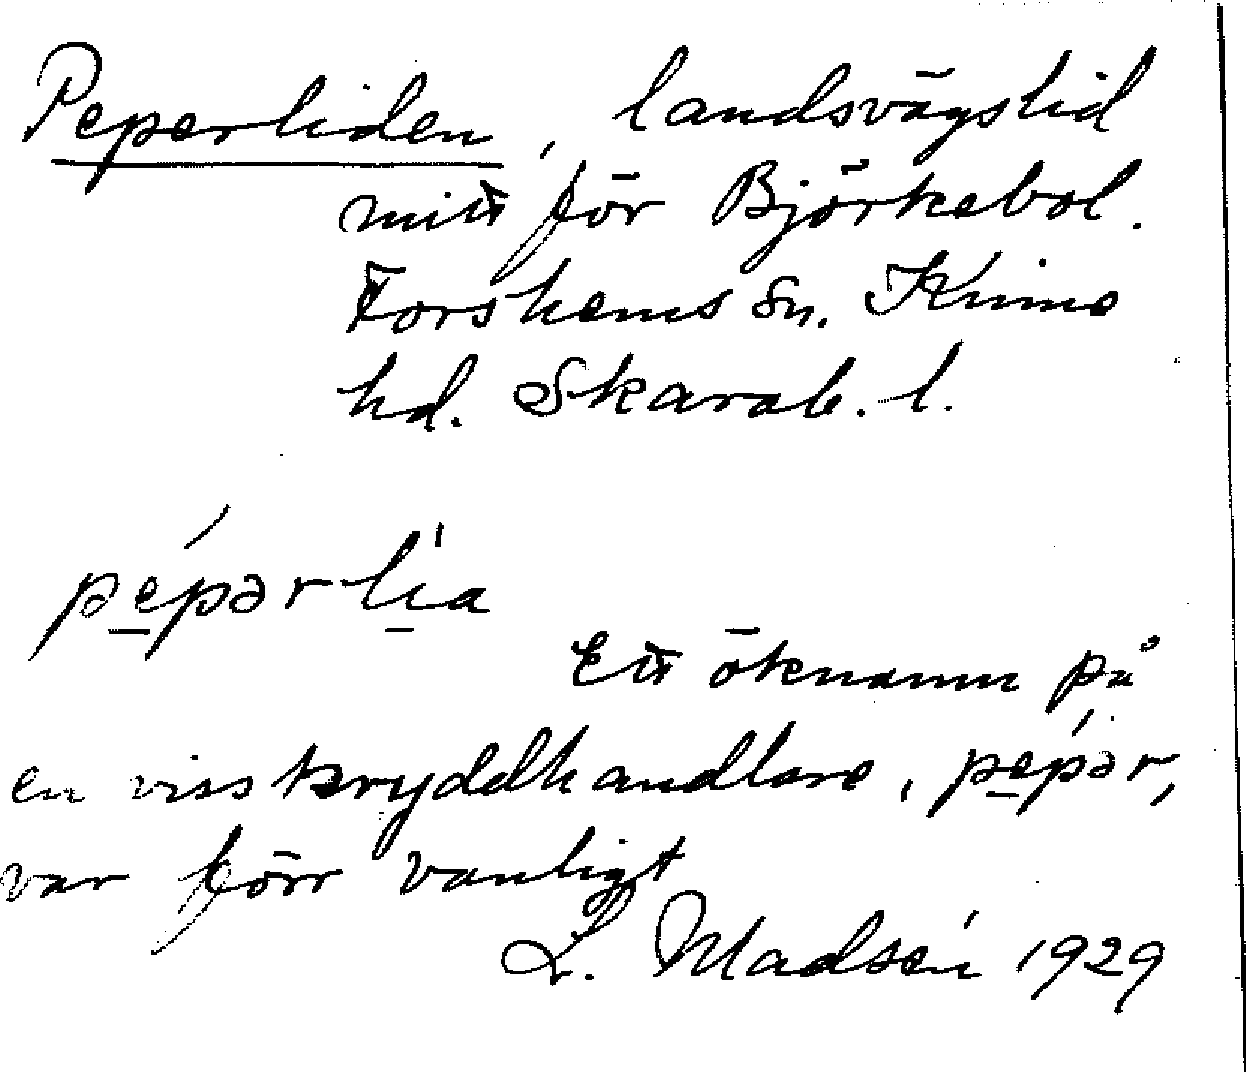 Peperliden, landsvägslid
mitt för Björkebol.
Forshems sn. Kinne
hd. Skarab. l.
pépərlìa
Ett öknamn på
en viss kryddhandlare, pépər,
var förr vanligt
L. Madsén 1929